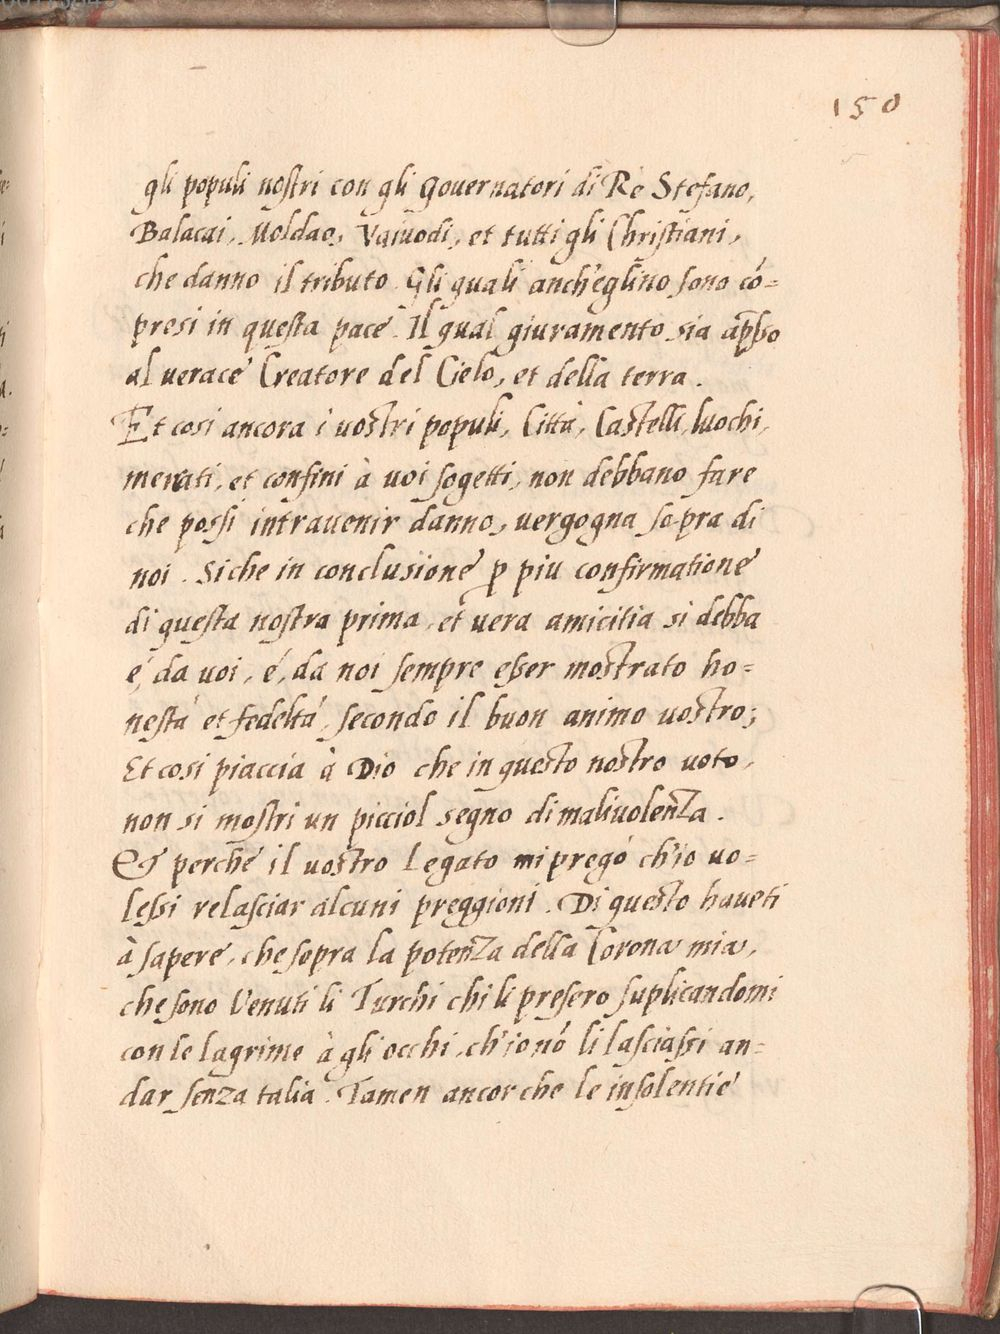 150
gli populi nostri con gli Gouernatori di Re Stefano,
Balacai, Moldao, Vaiuodi, et tutti gli Christiani,
che danno il tributo. Gli quali anch'eglino sono cõ=
presi in questa pace. Il qual giuramento sia app̃so
al uerace Creatore del Cielo, et della terra.
Et cosi ancora i uostri populi, Città, Castelli, luochi,
merati, et confini à uoi sogetti, non debbano fare
che possi intrauenir danno, uergogna sopra di
noi. Siche in conclusione p̱ piu confirmatione
di questa nostra prima, et uera amicitia si debba
é, da uoi, é, da noi sempre esser mostrato ho=
nestà et fedeltà, secondo il buon animo uostro;
Et cosi piaccia à Dio che in questo nostro uoto,
non si mostri un picciol segno di maliuolenza.
Et perche il uostro Legato mi pregò ch'io uo=
lessi relasciar alcuni preggioni. Di questo haueti
à sapere, che sopra la potenza della Corona mia,
che sono Venuti li Turchi chi li presero suplicandomi
con le lagrime à gli occhi, ch'io nõ li lasciassi an=
dar senza talia. Tamen ancor che le insolentie